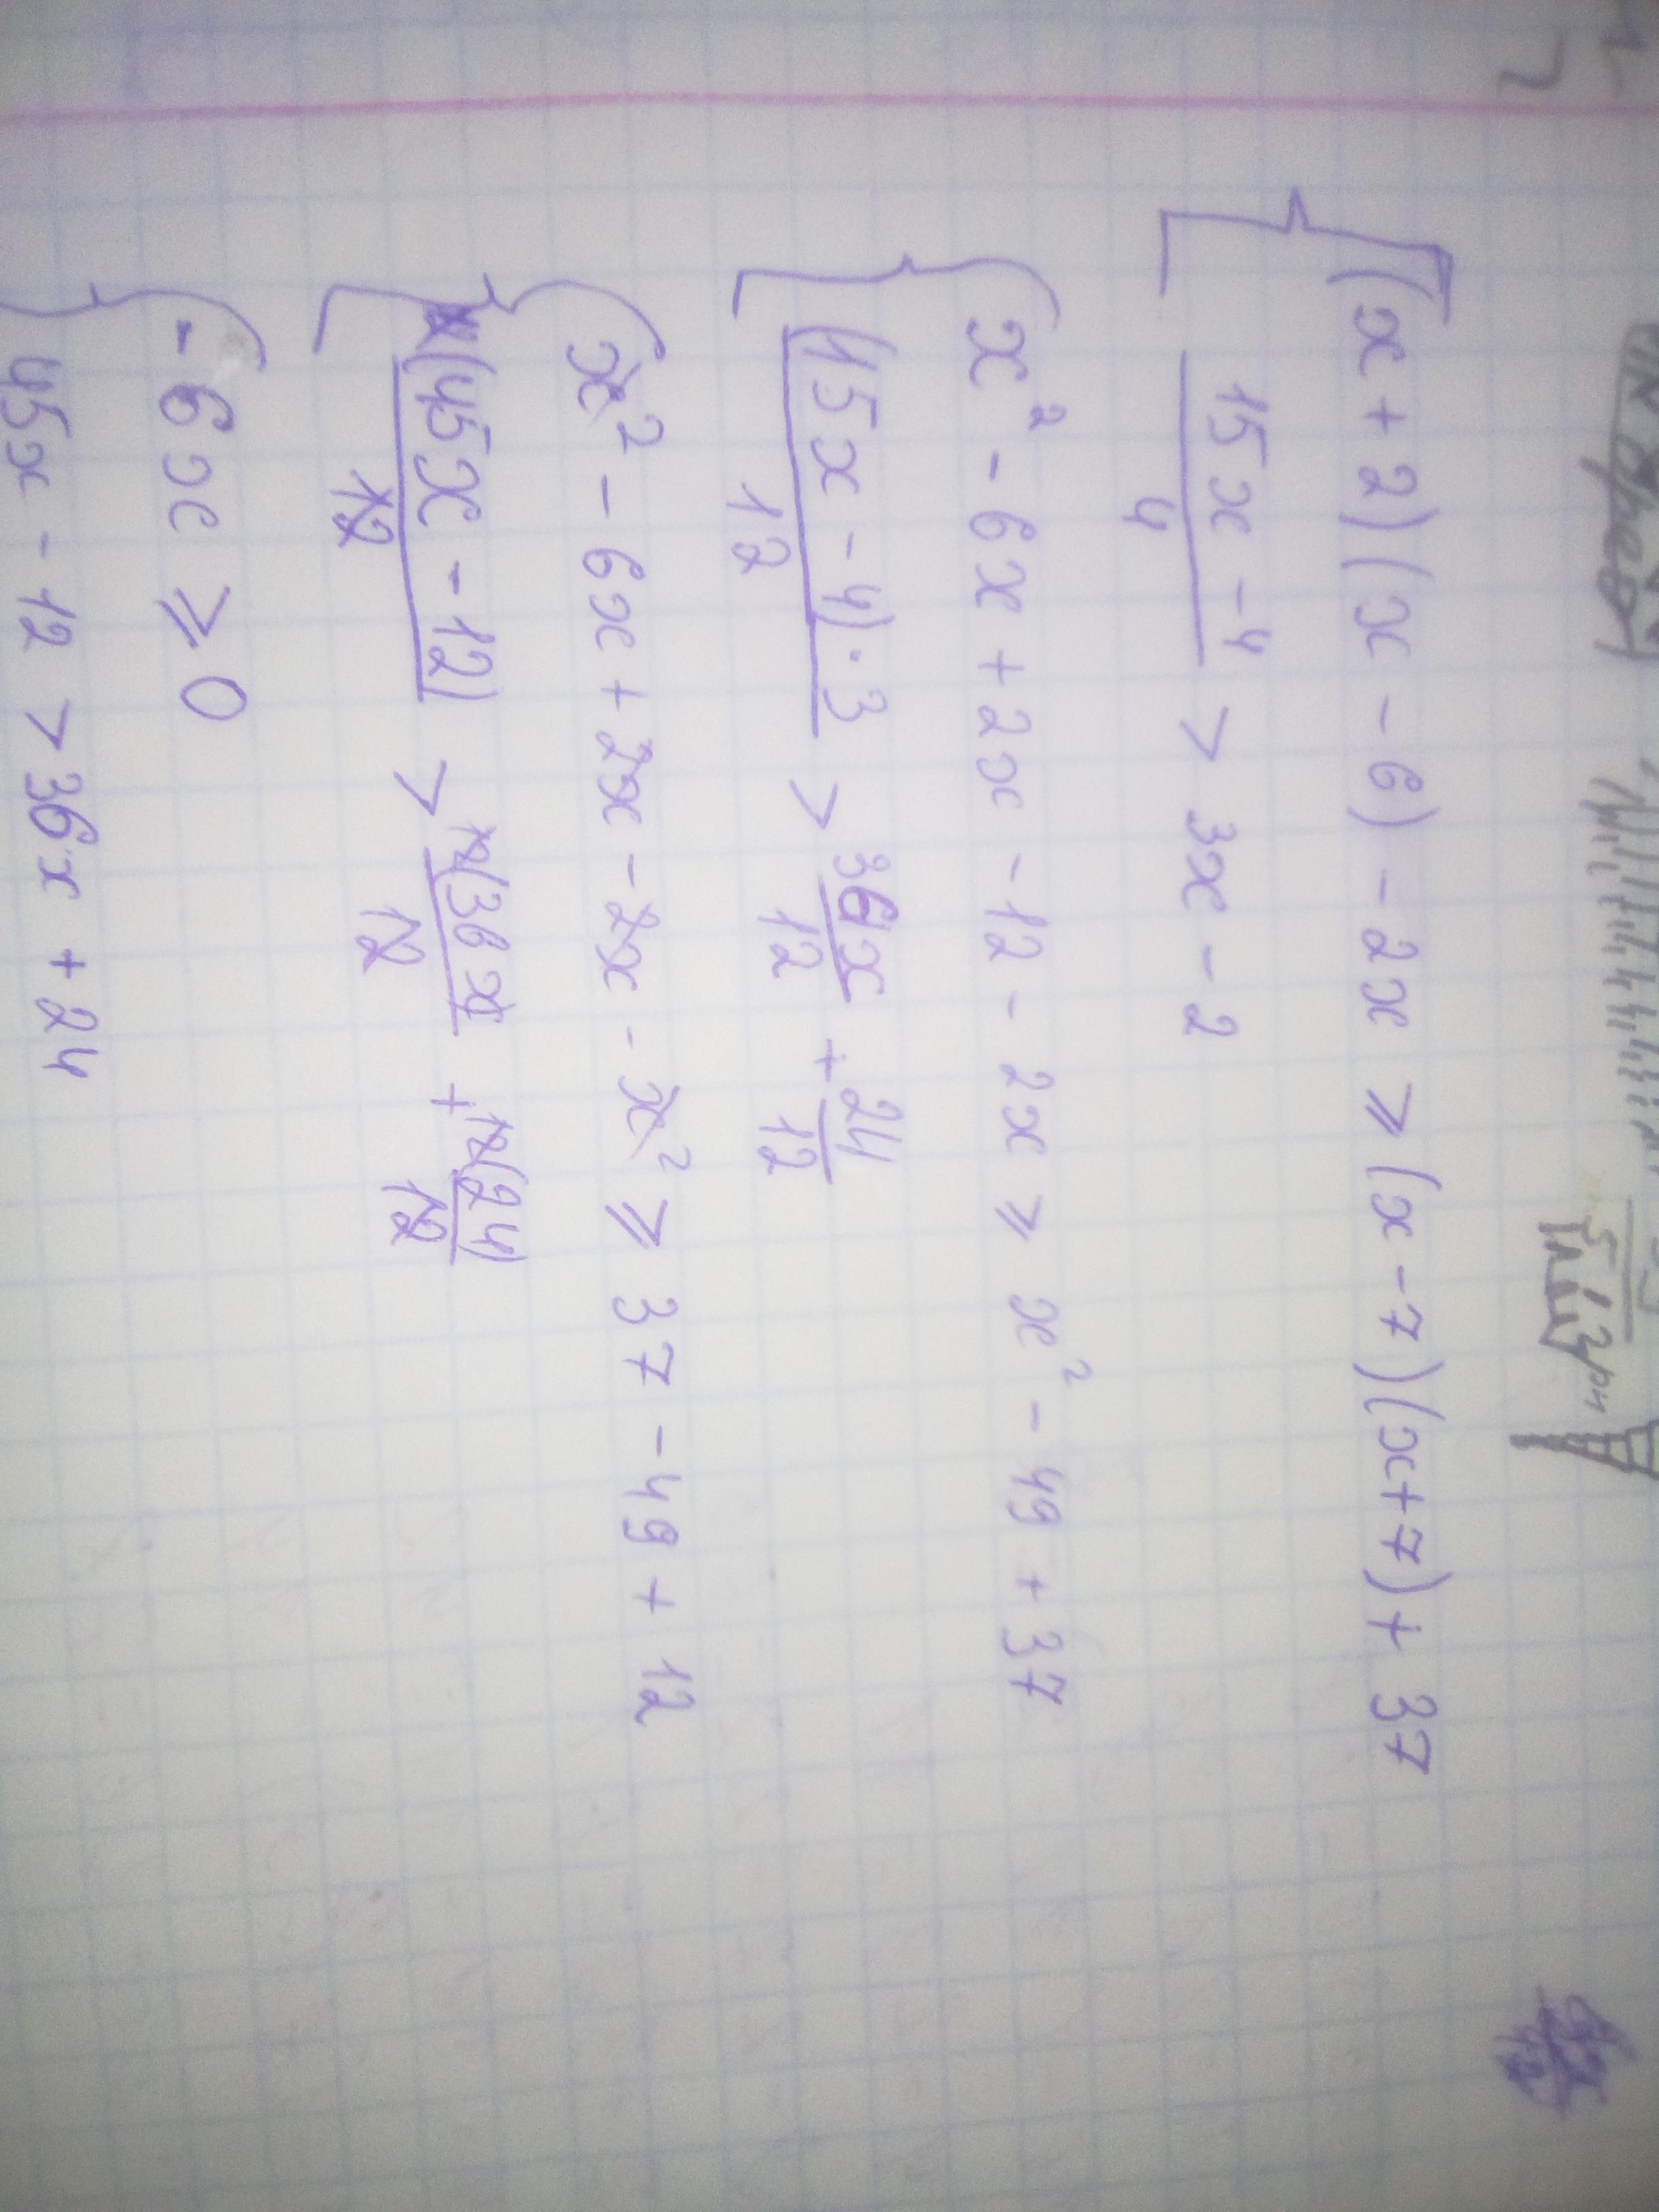 (x + 2)(x - 6) - 2x ⩾ (x - 7)(x + 7) + 37
15x - 4 / 4 > 3x - 2
x² - 6x + 2x - 12 - 2x ⩾ x² - 49 + 37
(15x - 4) · 3 / 12 > 36x / 12 + 24 / 12
x² - 6x + 2x - 2x - x² ⩾ 37 - 49 + 12
(45x - 12) / 12 > 12(36x) / 12 + 12(24) / 12
- 6x ⩾ 0
45x - 12 > 36x + 24